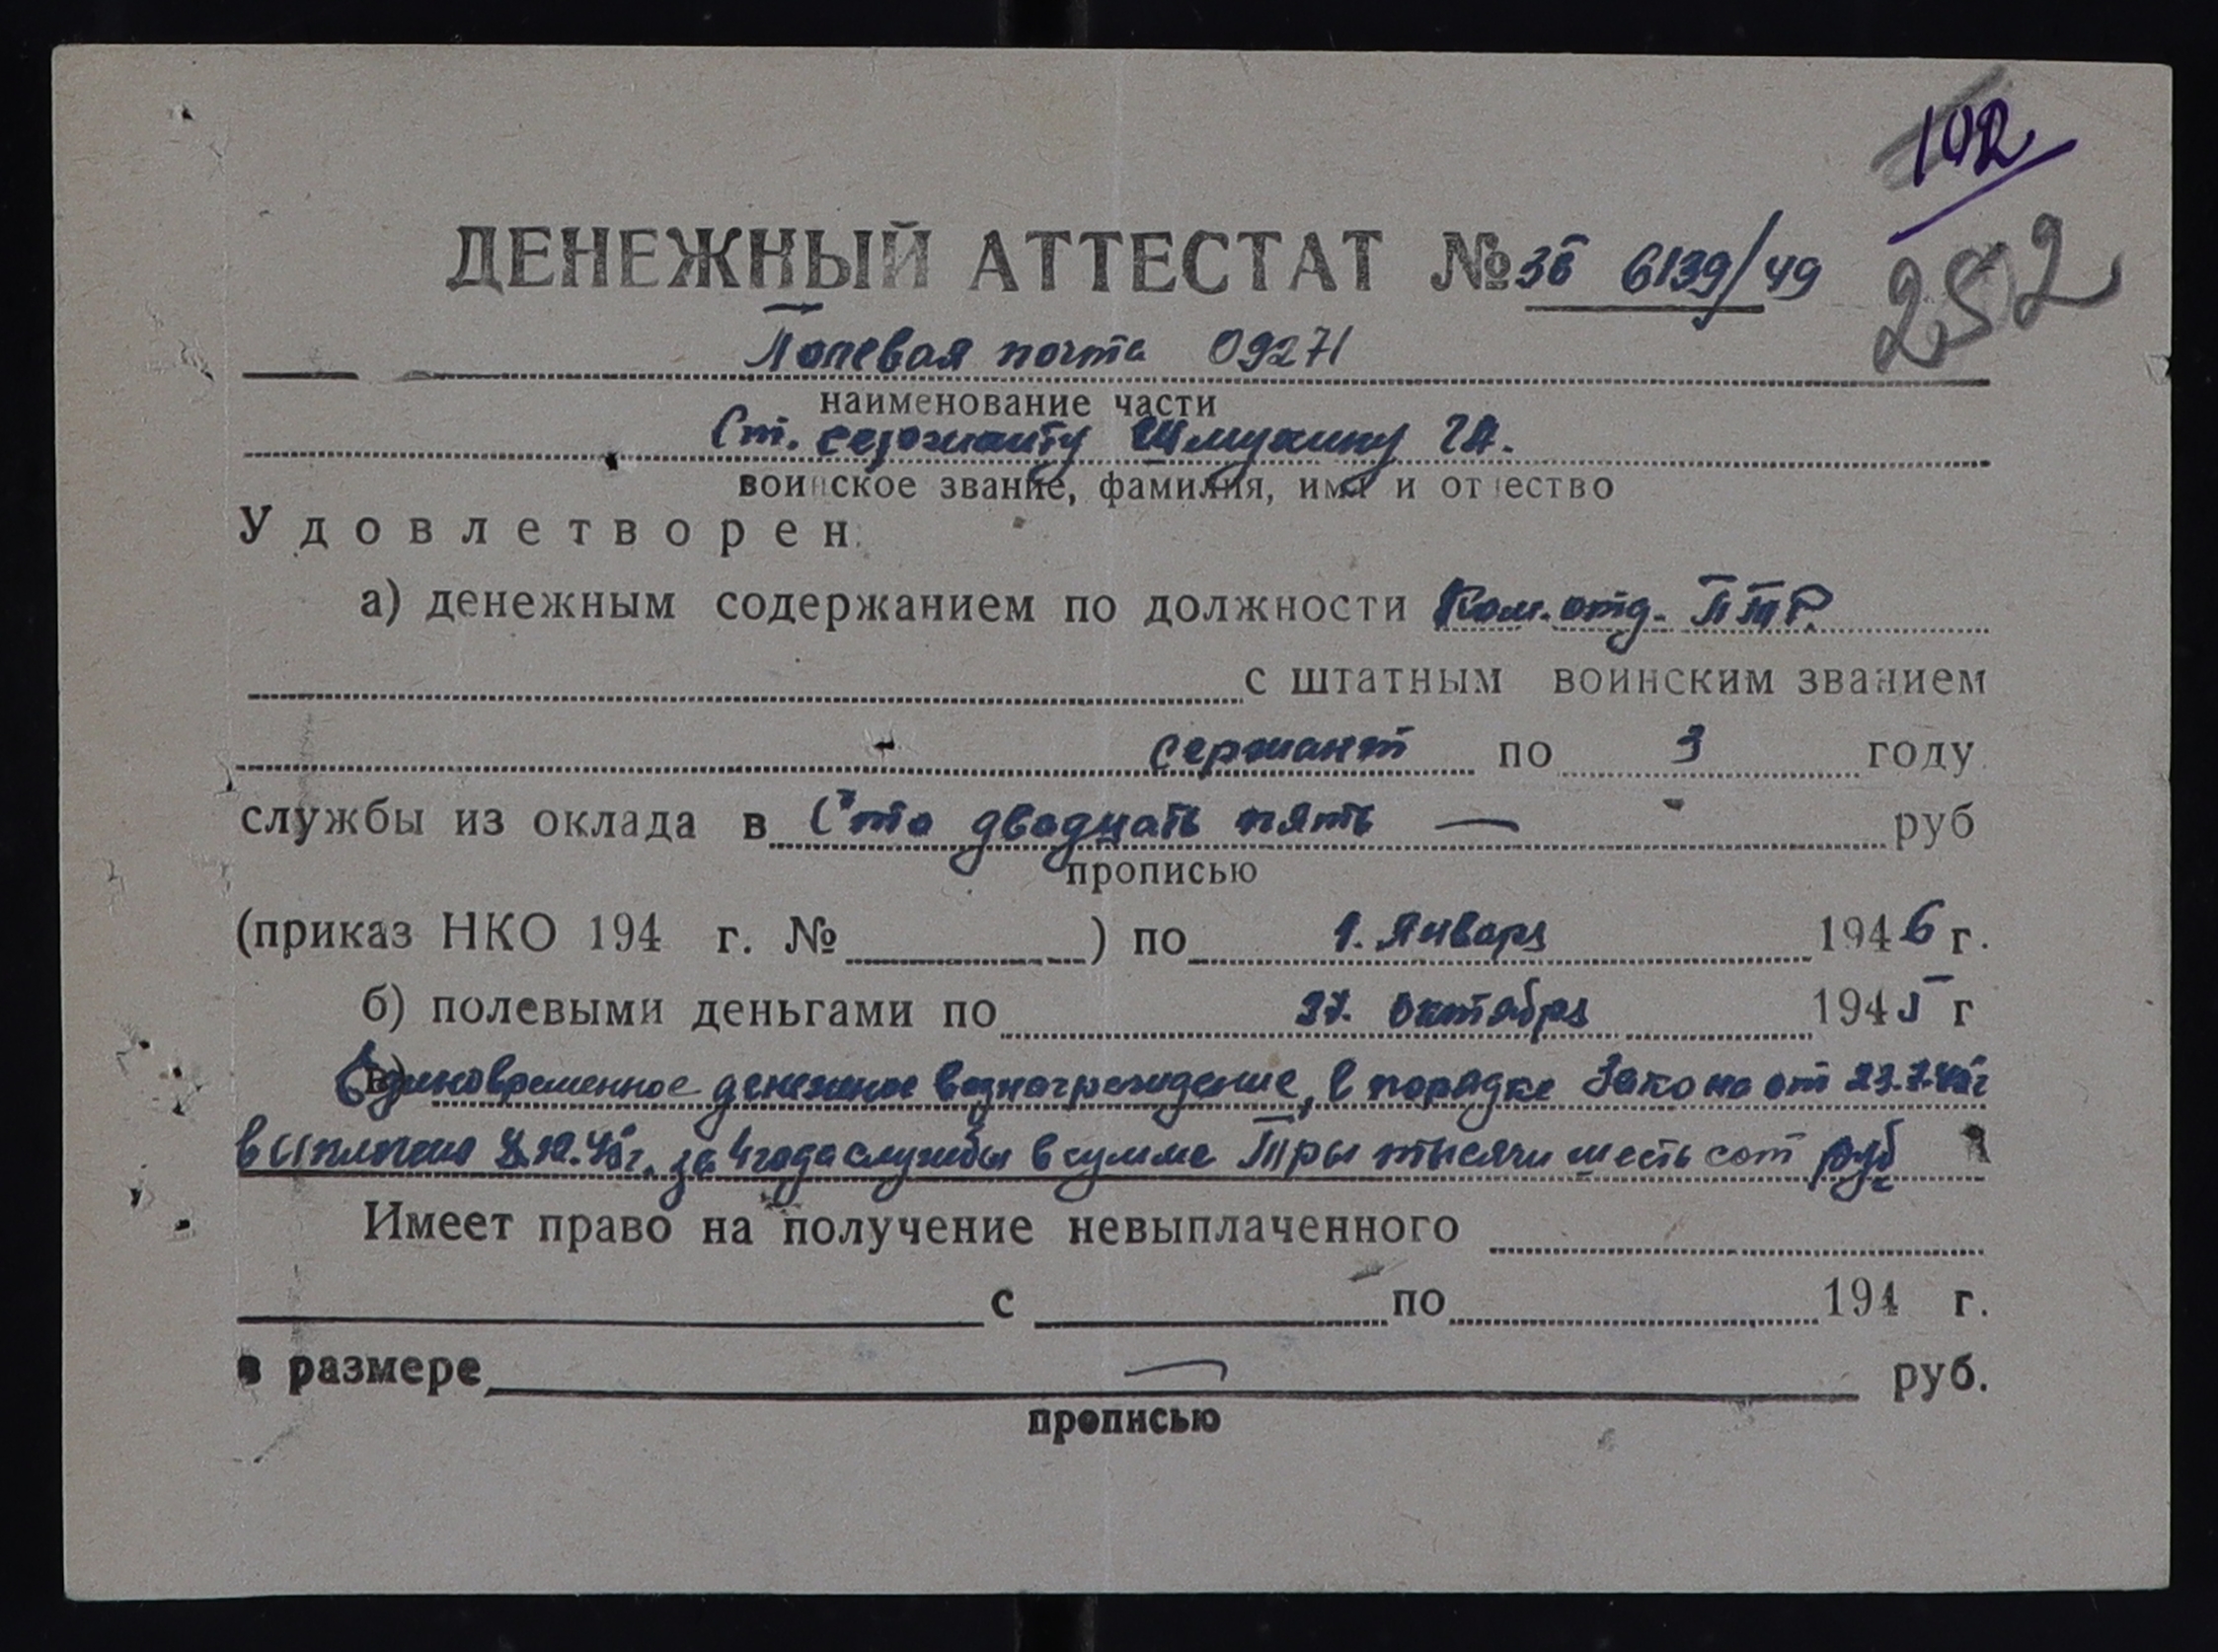 102
252
ДЕНЕЖНЫЙ АТТЕСТАТ № 36 6139/49
Полевая почта 09271
наименование части
Ст. сержанту Шмукину
воинское звание, фамилия, имя и отчество
Удовлетворен:
а) денежным содержанием по должности Ком. отд. ПТР.
с штатным воинским званием
сержант по 3 году
службы из оклада в Сто двадцать пять — руб
прописью
(приказ НКО 194 г. № ) по 1. Января 1946 г.
б) полевыми деньгами по 27. октября 1945 г
Единовременное денежное вознаграждение, в порядке Закона от 23.
выплачено за 4 года службы в сумме Три тысячи шесть сот руб
Имеет право на получение невыплаченного
с по 194 г.
в размере — руб.
прописью